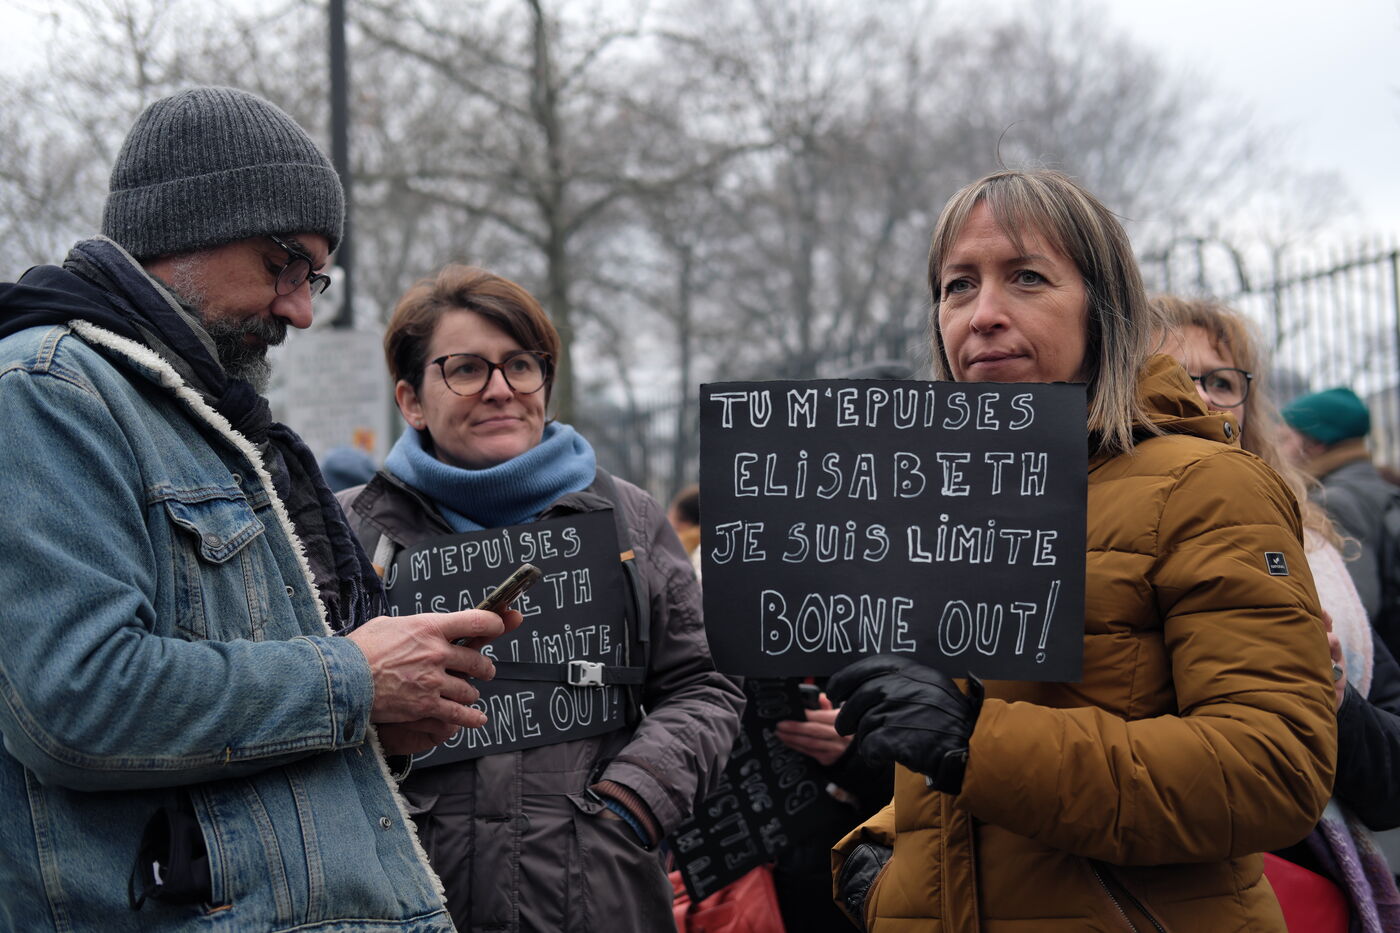 TU M'EPUISES
ELISABETH
JE SUIS LIMITE
BORNE OUT!
M'EPUISES
LIMITE
BORNE OUT!